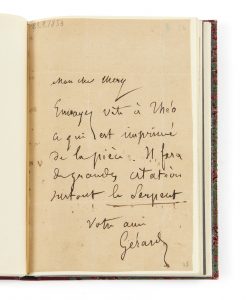 Mon cher Mery
Envoyez vite à Théo
ce qui est imprimé
de la pièce. Il fera
de grandes citation
surtout le Serpent
Votre ami
Gérard